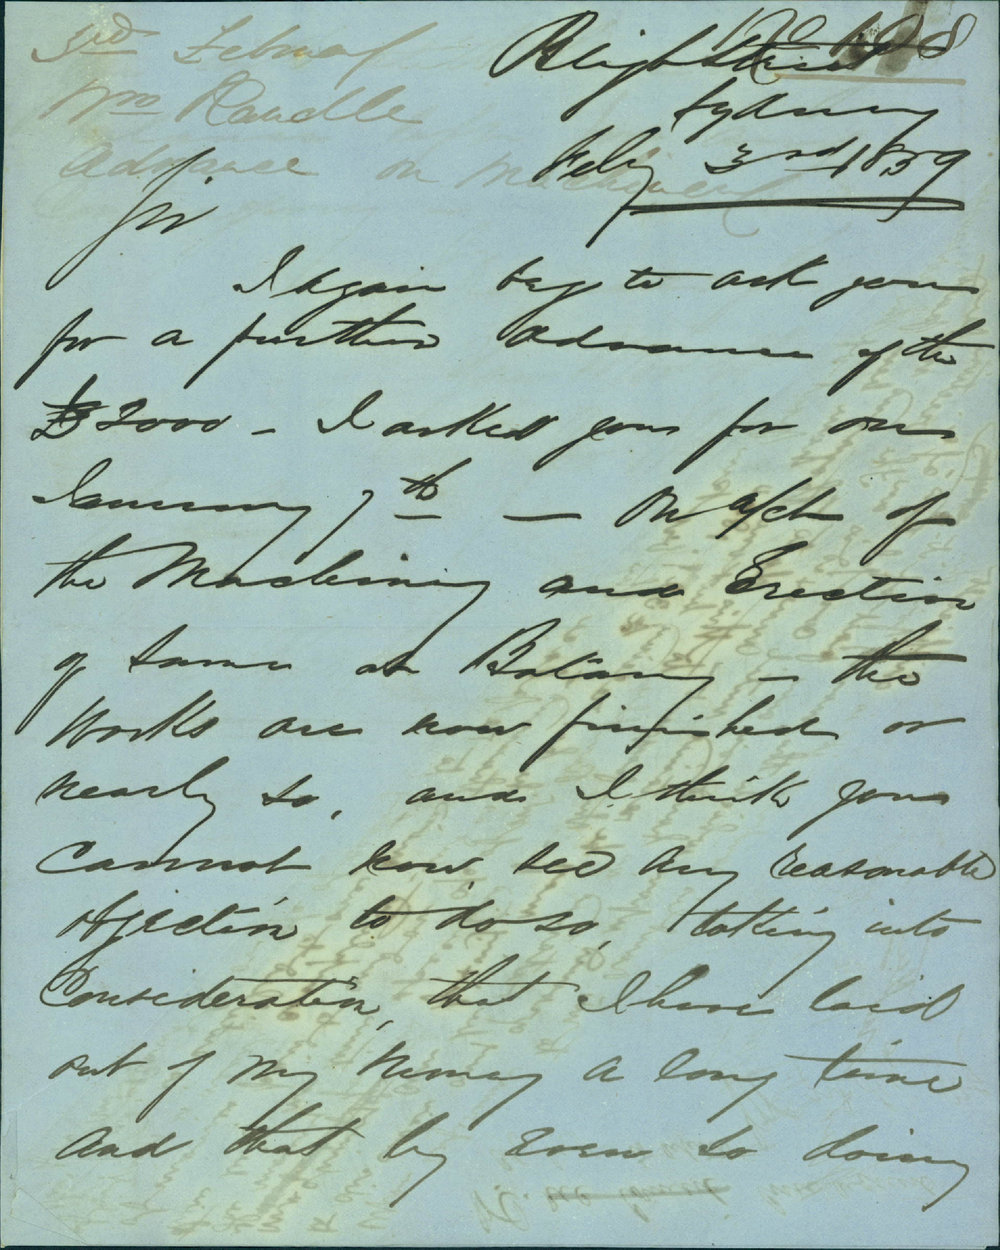 3rd February
Wm Randle
Advance on Machinery
Bligh Street
Sydney
Feby 3rd 1859
Sir
I again beg to ask you
for a further advance of the
£2000 - I asked you for on
January 7th - on a/c of
the Machinery and Erection
of same at Botany - the
Works are now finished or
nearly so, and I think you
Cannot now see any reasonable
objection to do so, taking into
Consideration, that I have laid
out of my Money a long time
and that by even so doing